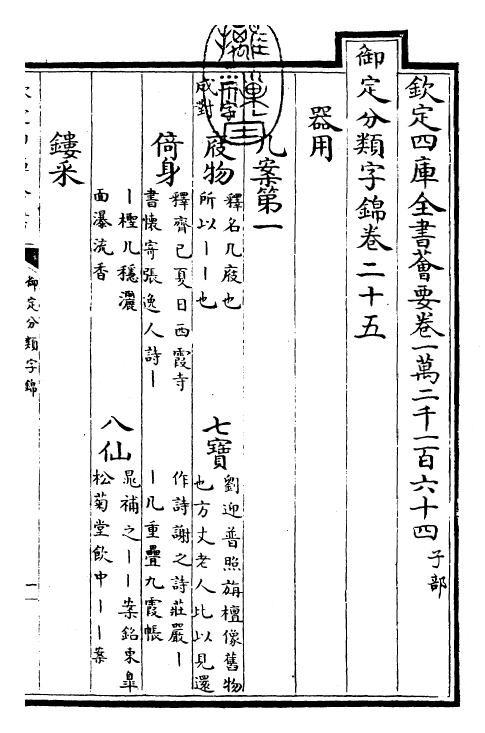 欽定四庫全書薈要卷一萬二千一百六十四 子部
御定分類字錦卷二十五
器用
几案第一
二字
成對
庋物
釋名几庋也
所以丨丨也
七寶
劉迎普照旃檀像舊物
也方丈老人比以見還
作詩謝之詩莊嚴丨
丨几重疊九霞帳
倚身
釋齊己夏日西霞寺
書懷寄張逸人詩丨
丨檉几穩灑
面瀑流香
八仙
晁補之丨丨案銘東皐
松菊堂飲中丨丨案
鏤采
御定分類字錦
一